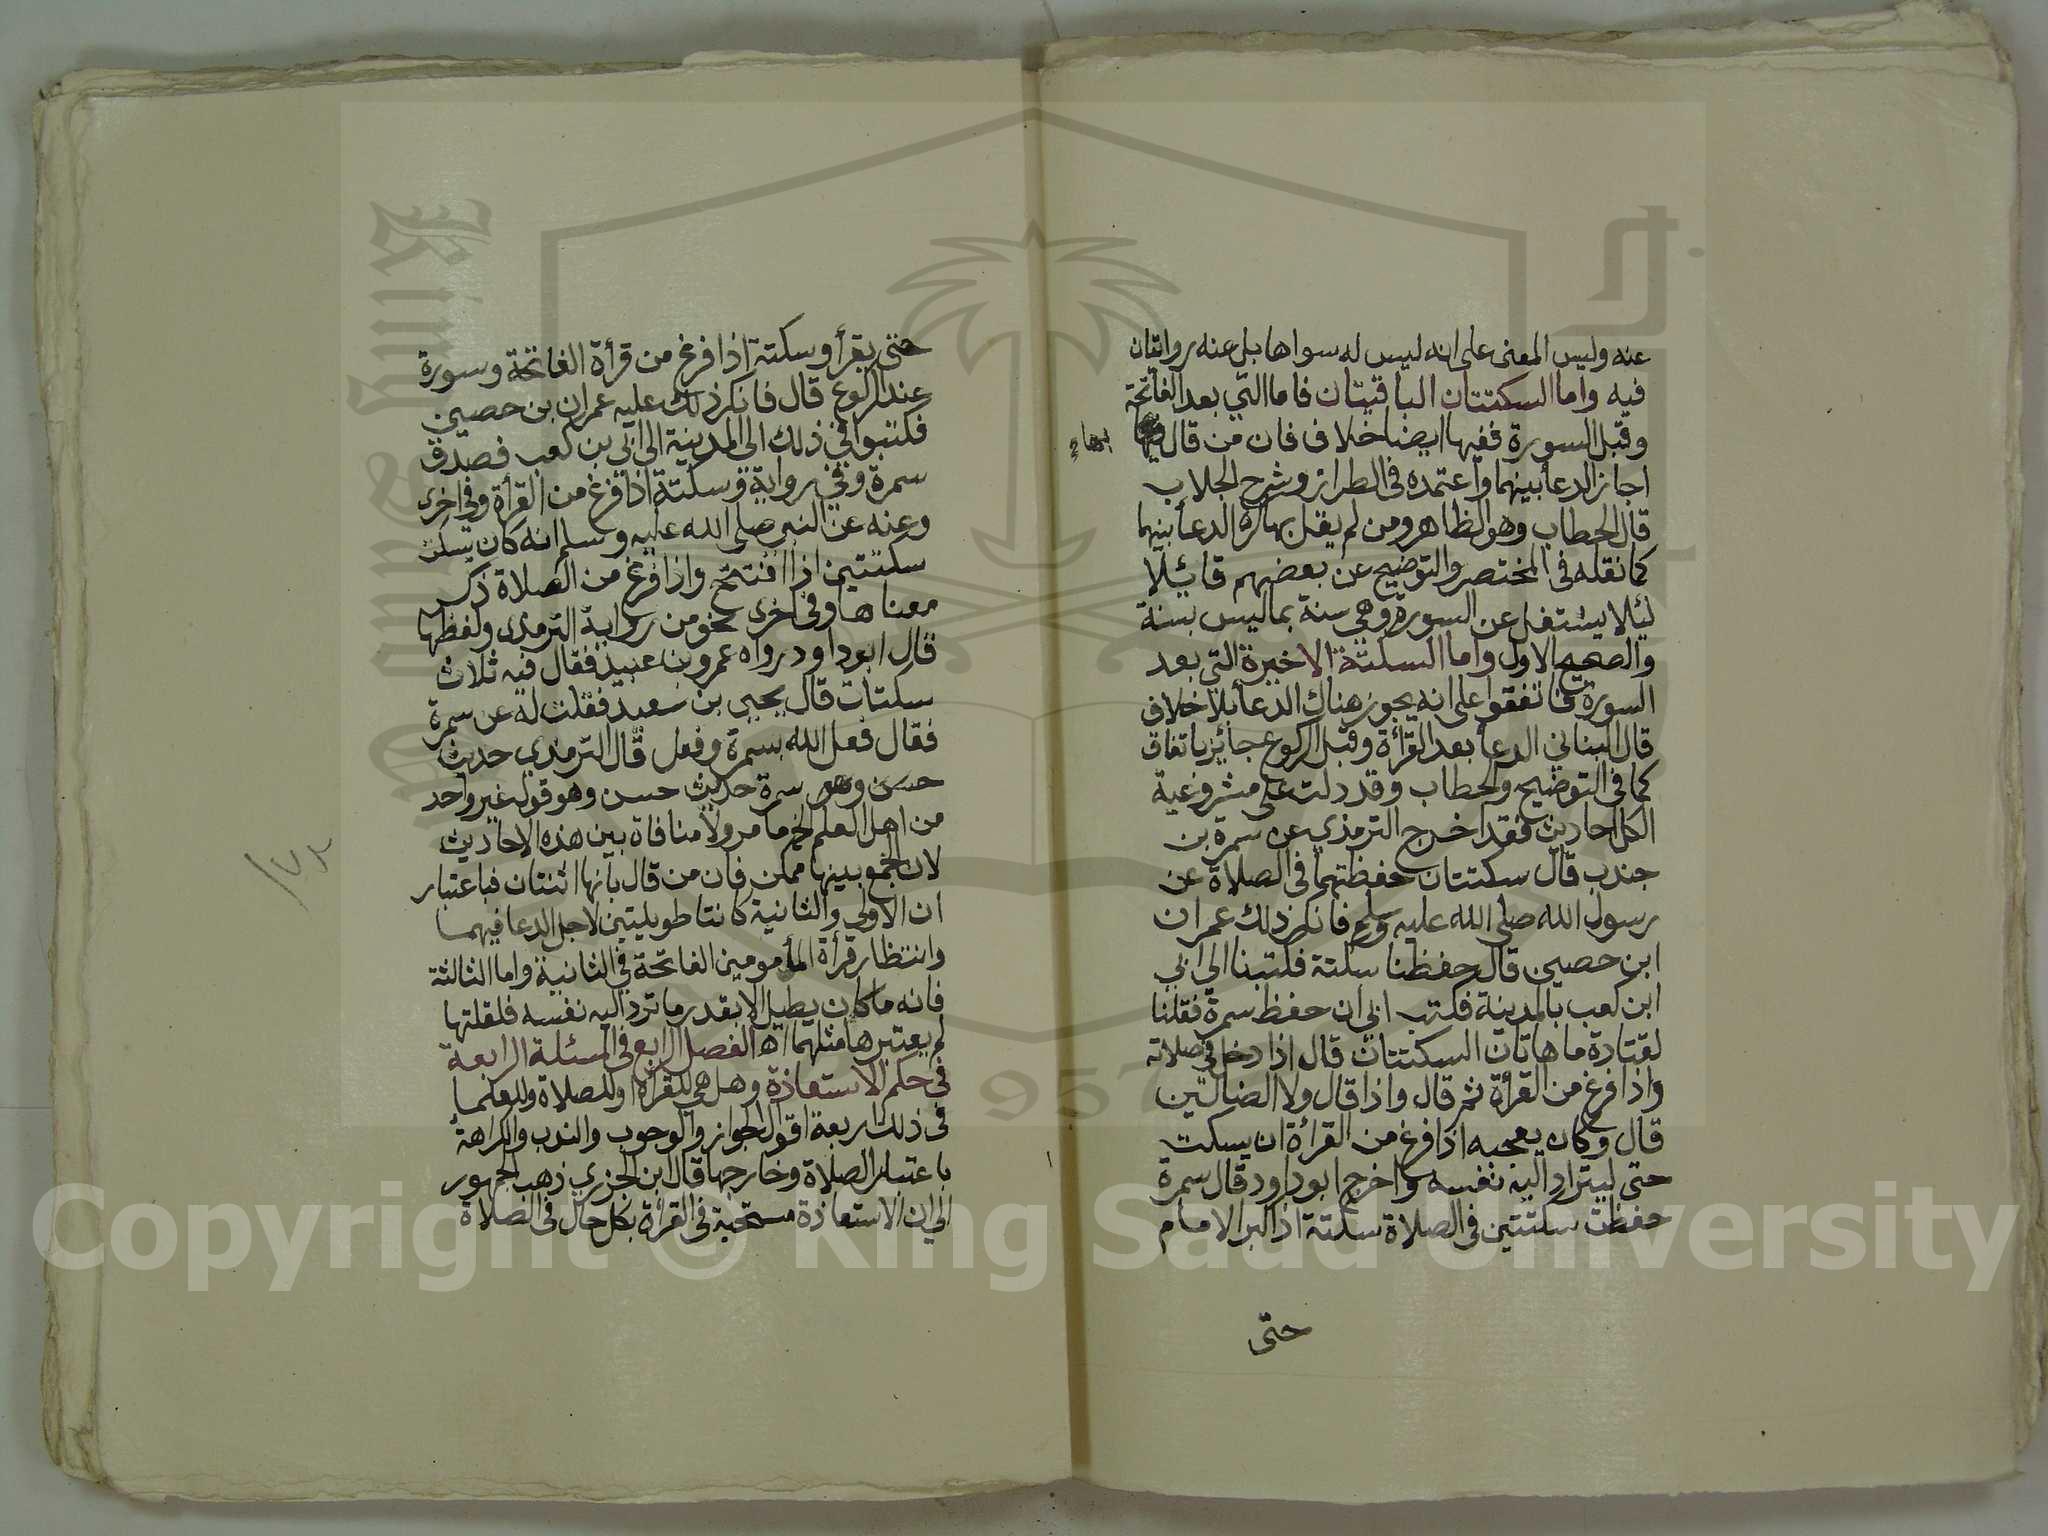 عنه وليس المعنى على انه ليس له سواها بل عنه روايتان
فيه واما السكتتان الباقيتان فاما التي بعد الفاتحة
وقبل السورة ففيها ايضا خلاف فان من قال
بهما
اجاز الدعأ بينهما واعتمده فى الطراز وشرح الجلاب
قال الحطاب وهو الظاهر ومن لم يقل بها كره الدعأ بينهما
كما نقله فى المختصر والتوضيح عن بعضهم قائيلا
ليئلا يشتغل عن السورة وهي سنة بما ليس بسنة
والصحيح الاول واما السكتة الاخيرة التي بعد
السورة فاتفقوا على انه يجوز هناك الدعأ بلا خلاف
قال البناني الدعأ بعد القرأة وقبل الركوع جائز باتفاق
كما فى التوضيح والحطاب وقد دلت على مشروعية
الكل احاديث فقد اخرج الترمذي عن سمرة بن
جندب قال سكتتان حفظتهما فى الصلاة عن
رسول الله صلى الله عليه وسلم فانكر ذلك عمران
ابن حصين قال حفظنا سكتة فكتبنا الى ابي
ابن كعب بالمدينة فكتب ابي ان حفظ سمرة فقلنا
لقتادة ما هاتان السكتتان قال اذا دخل فى صلاته
واذا فرغ من القرأة ثم قال واذا قال ولا الضالين
قال وكان يعجبه اذا فرغ من القرأة ان يسكت
حتى ليتراد اليه نفسه واخرج ابو داود قال سمرة
حفظت سكتتين فى الصلاة سكتة اذا كبر الامام
حتى
حتى يقرأ وسكتة اذا فرغ من قرأة الفاتحة وسورة
عند الركوع قال فانكر ذلك عليه عمران بن حصين
فكتبوا في ذلك الى المدينة الى ابي بن كعب فصدق
سمرة وفي رواية وسكتة اذا فرغ من القرأة وفى اخرى
وعنه عن النبي صلى الله عليه وسلم انه كان يسكت
سكتتين اذا افتتح واذا فرغ من الصلاة ذكر
معناها وفى اخرى نحو من رواية الترمذى ولفظها
قال ابو داود رواه عمرو بن عبيد فقال فيه ثلاث
سكتات قال يحيى بن سعيد فقلت له عن سمرة
فقال فعل الله بسمرة وفعل قال الترمذي حديث
حسن وهو سمرة حديث حسن وهو قول غير واحد
من اهل العلم الخ ما مر ولا منافاة بين هذه الاحاديث
لان الجمع بينها ممكن فان من قال بانها اثنتان فباعتبار
ان الاولي والثانية كانتا طويلتين لاجل الدعا فيهما
وانتظار قرأة المأمومين الفاتحة في الثانية واما الثالثة
فانه ما كان يطيل الا بقدر ما ترد اليه نفسه فلقلتها
لم يعتبرها مثلهما اه الفصل الرابع فى المسئلة الرابعة
في حكم الاستعاذة وهل هي للقرأة او للصلاة وللعلما
فى ذلك اربعة اقوال الجواز والوجوب والندب والكراهة
باعتبار الصلاة وخارجها قال ابن الجزري ذهب الجمهور
الى ان الاستعاذة مستحبة فى القرأة بكل حال فى الصلاة
Copyright © King Saud University
1957